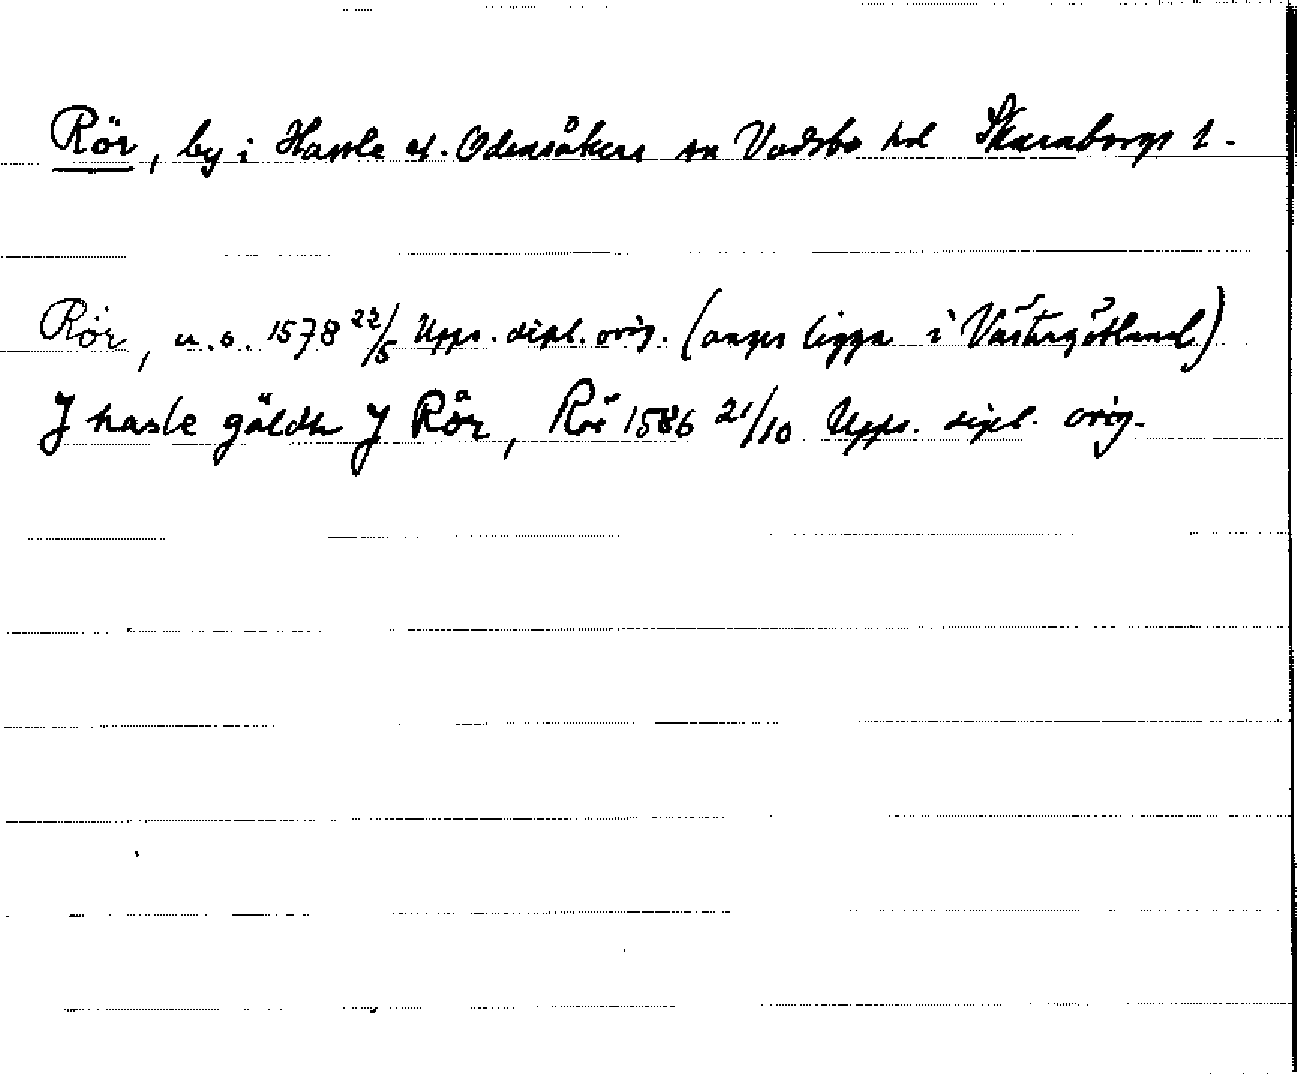 Rör, by i Hassle el. Odensåkers sn Vadsbo hd Skaraborgs l.
Rör, u.o. 1578 22/5 Upps. dipl. orig. (anges ligga i Västergötland)
J hasle gäldh J Rör, Rör 1586 21/10 Upps. dipl. orig.